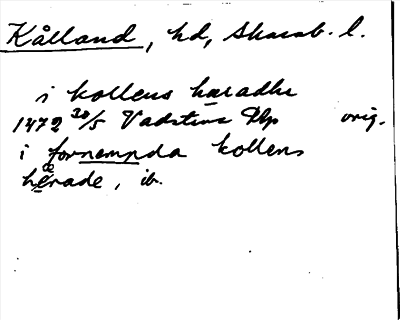 Kålland, hd, Skarab. l.
i kollens haradhe
1472 20/5 Vadstena Dlp orig.
i fornempda kollens
hærade, ib.